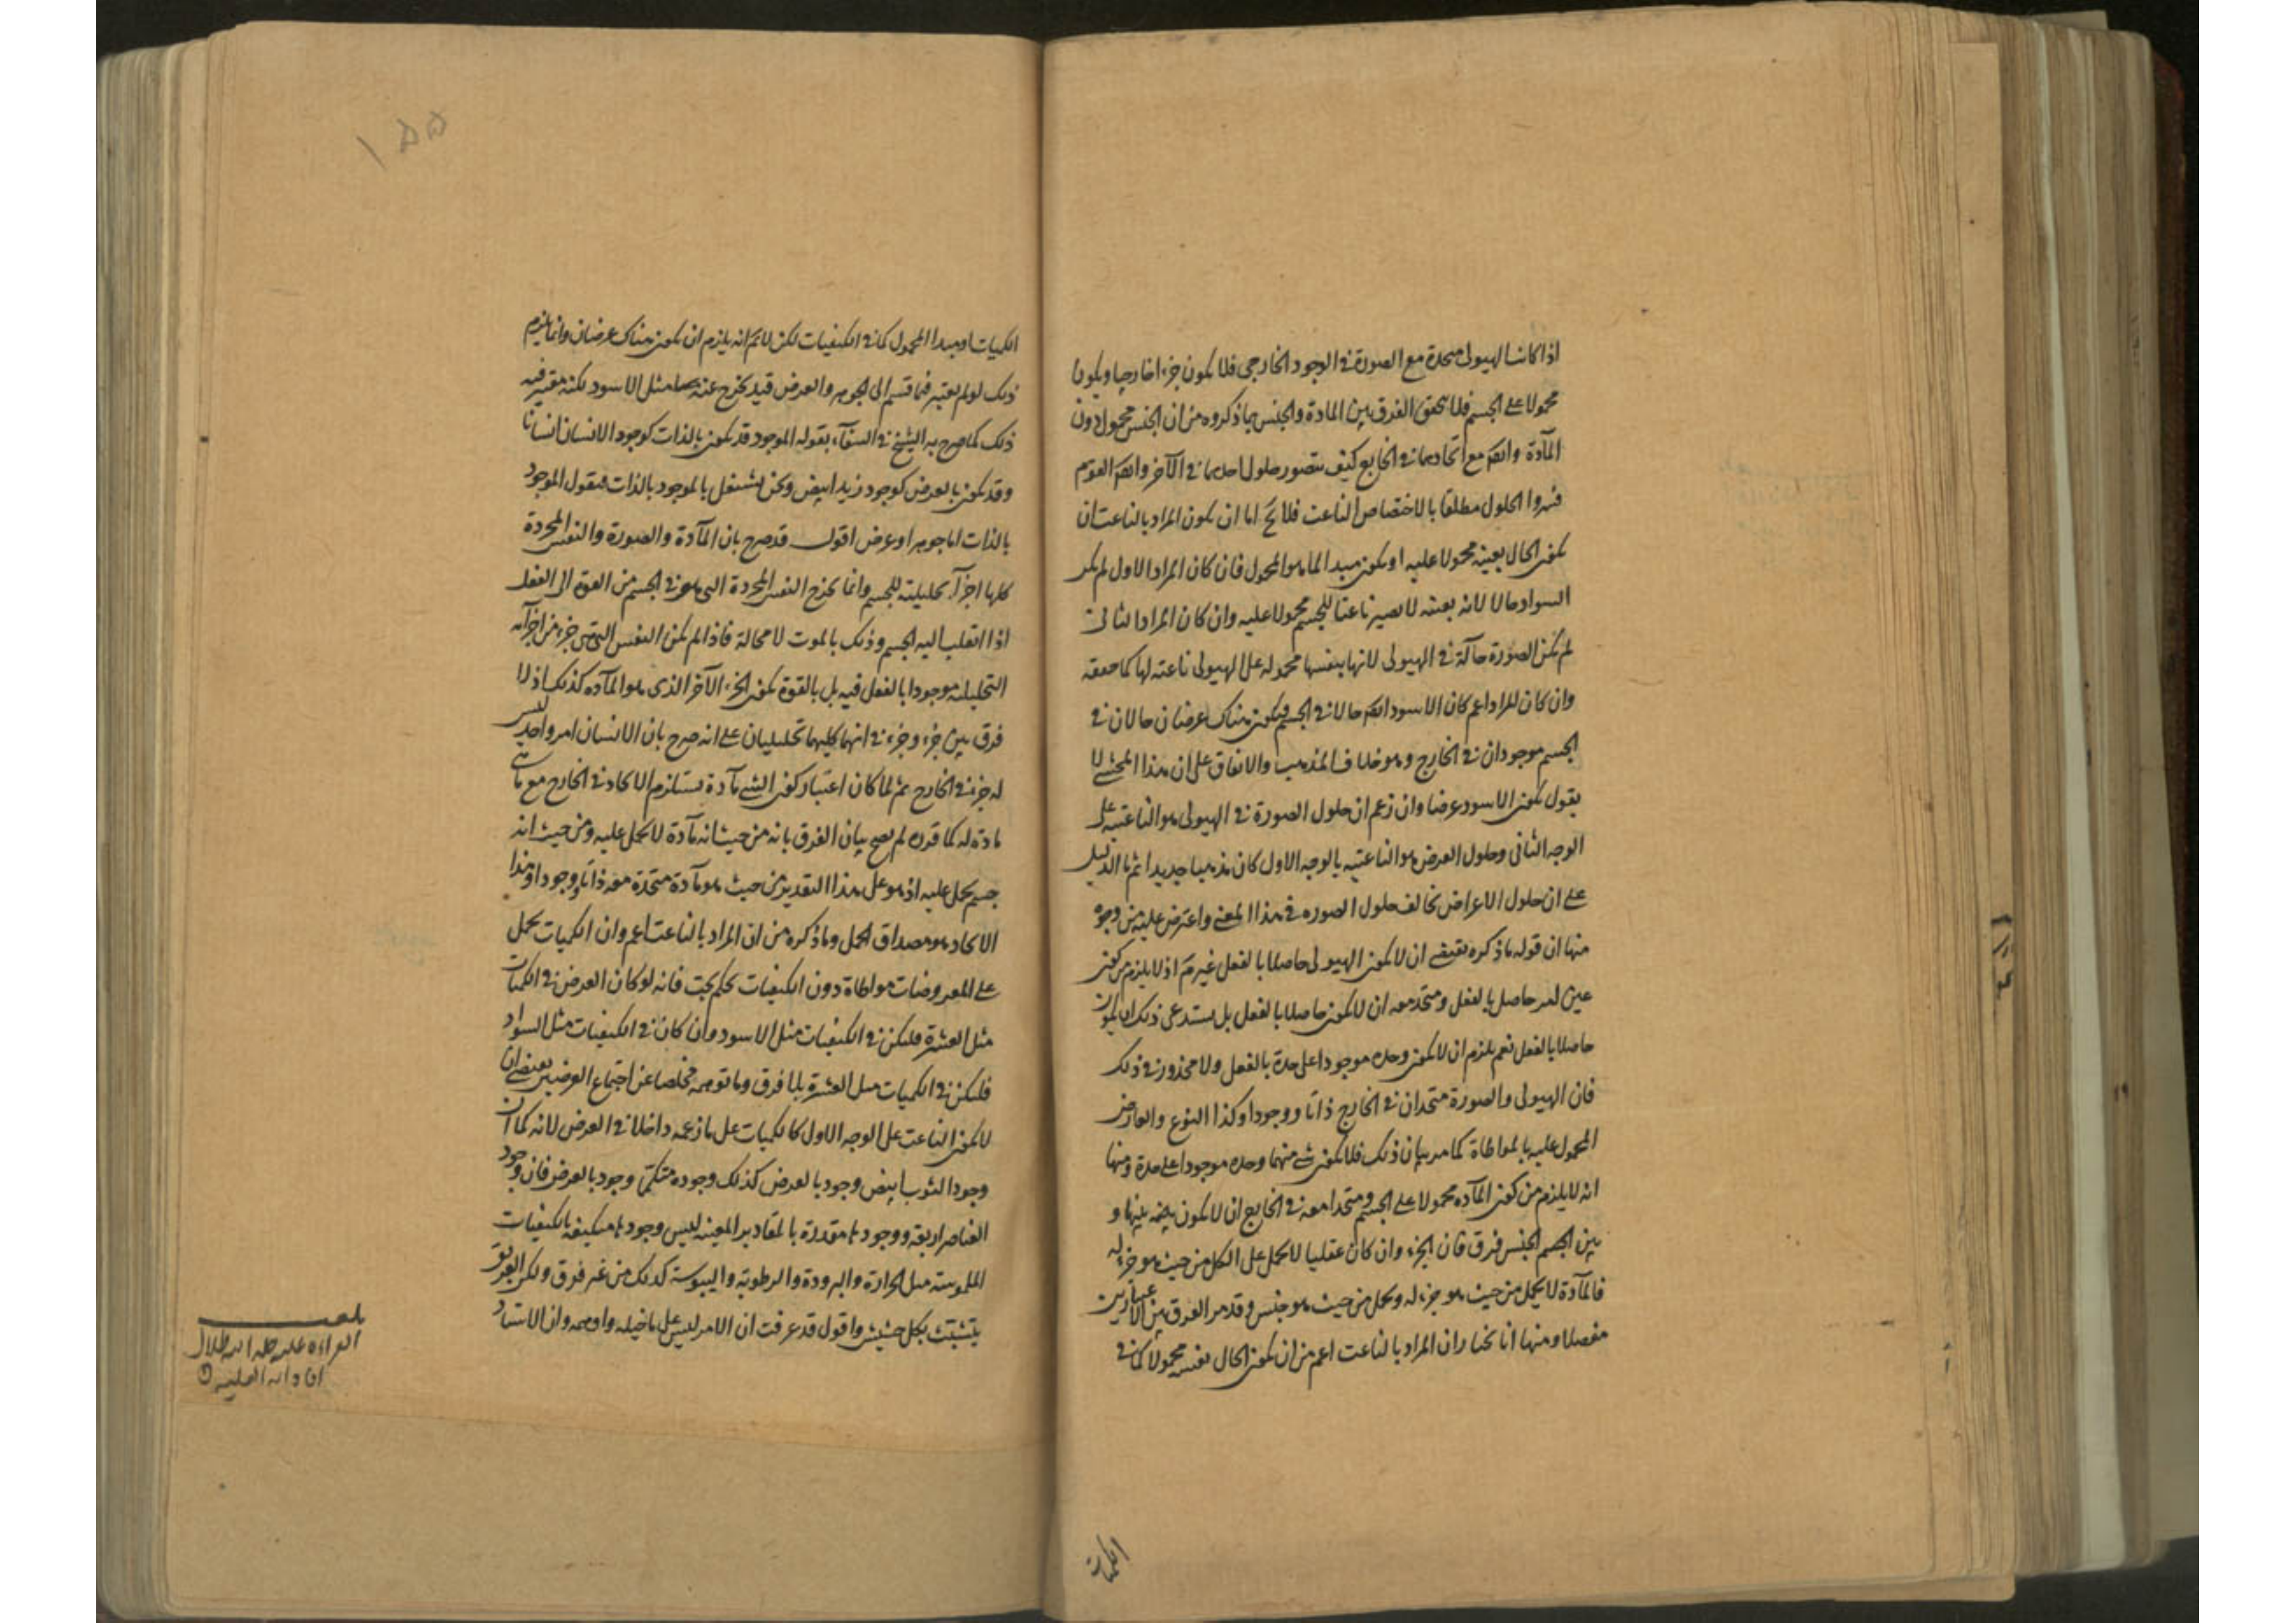 اذا كانت الهيولى متحدة مع الصورة في الوجود الخارجي فلا يكون جزءا خارجيا ويكون
محمولا على الجسم فلا يتحقق الفرق بين المادة والجنس بما ذكروه من ان الجنس محمول دون
المآدة وايضا مع اتحادهما في الخارج كيف يتصور حلول احدهما في الآخر وايضا القوم
فسروا الحلول مطلقا بالاختصاص الناعت فلا يخ اما ان يكون المراد بالناعت ان
يكون الحال بعينه محمولا عليه او يكون مبدا لما هو المحمول فان كان المراد الاول لم يكن
السواد حالا لانه بعينه لا يصير ناعتا للجسم محمولا عليه وان كان المراد الثاني
لم يكن الصورة حآلة في الهيولى لانها بنفسها محموله على الهيولى ناعته لها كما حققه
وان كان المراد اعم كان الاسود ايضا حالا في الجسم فيكون هناك عرضان حالان في
الجسم موجودان في الخارج وهو خلاف المذهب والاتفاق على ان هذا المحشى لا
يقول بكون الاسود عرضا وان زعم ان حلول الصورة في الهيولى هو الناعتيه على
الوجه الثاني وحلول العرض هو الناعتيه بالوجه الاول كان مذهبا جديدا ثم ما الدليل
على ان حلول الاعراض تخالف حلول الصوره في هذا المعنى واعترض عليه من وجوه
منها ان قوله ما ذكره يقتضي ان لا يكون الهيولى حاصلا بالفعل غير مم اذ لا يلزم من كون
عين امر حاصل بالفعل ومتحد معه ان لا يكون حاصلا بالفعل بل يستدعى ذلك ان يكون
حاصلا بالفعل نعم يلزم ان لا يكون وحده موجودا على حدة بالفعل ولا محذور في ذلك
فان الهيولى والصورة متحدان في الخارج ذاتا ووجودا وكذا النوع والعارض
المحمول عليه بالمواطاة كما مر بيان ذلك فلا يكون شي منهما وحده موجودا على حدة ومنها
انه لا يلزم من كون المآده محمولا على الجسم ومتحدا معه في الخارج ان لا يكون بينها و
بين الجسم الجنس فرق فان الجزء وان كان عقليا لا يحمل على الكل من حيث هو جزء له
فالمآدة لا يحمل من حيث هو جزء له ويحمل من حيث هو جنس وقد مر الفرق بين الاعتبارين
مفصلا ومنها انا نختار ان المراد بالناعت اعم من ان يكون الحال بنفسه محمولا كما في
الكميات
١٥٥
الكميات او مبدا المحمول كما في الكيفيات لكن لا نم انه يلزم ان يكون هناك عرضان وانما يلزم
ذلك لو لم يعتبر فيما قسم الى الجوهر والعرض قيد يخرج عنه مثل الاسود لكنه معتبر فيه
ذلك كما صرح به الشيخ في الشفآء بقوله الموجود قد يكون بالذات كوجود الانسان انسانا
وقد يكون بالعرض كوجود زيد ابيض ونحن نشتغل بالموجود بالذات فنقول الموجود
بالذات اما جوهر او عرض اقول قد صرح بان المآدة والصورة والنفس المجردة
كلها اجزآء تحليلية للجسم وانما يخرج النفس المجردة التي هو في الجسم من القوة الى الفعل
اذا انقلب اليه الجسم وذلك بالموت لا محالة فاذا لم يكن النفس التي هي جزء من اجزآئه
التحليليه موجودا بالفعل فيه بل بالقوة يكون الجزء الآخر الذي هو المآده كذلك اذ لا
فرق بين جزء وجزء في انهما كليهما تحليليان على انه صرح بان الانسان امر واحد ليس
له جزء في الخارج ثم لما كان اعتبار كون الشئ مآدة يستلزم الاتحاد في الخارج مع ما هي
مادة له كما قدره لم يصح بيان الفرق بانه من حيث انه مآدة لا يحمل عليه ومن حيث انه
جسم يحمل عليه اذ هو على هذا التقدير من حيث هو مآدة متحدة معه ذاتا ووجودا وهذا
الاتحاد هو مصداق الحمل وما ذكره من ان المراد بالناعت اعم وان الكميات يحمل
على المعروضات مواطاة دون الكيفيات تحكم بحت فانه لو كان العرض في الكميات
مثل العشرة فليكن في الكيفيات مثل الاسود وان كان في الكيفيات مثل السواد
فليكن في الكميات مثل العشرة بلا فرق وما توهمه مخلصا عن اجتماع العرضين يقتضي ان
لا يكون الناعت على الوجه الاول كالكميات على ما زعمه داخلا في العرض لانه كما ان
وجود الثوب ابيض وجود بالعرض كذلك وجوده متكمما وجود بالعرض فان وجود
العناصر اربعة ووجودها مقدرة بالمقادير المعينه ليس وجودها متكيفة بالكيفيات
الملموسة مثل الحرارة والبرودة والرطوبة واليبوسة كذلك من غير فرق ولكن الغريق
يتشبث بكل حشيش واقول قد عرفت ان الامر ليس على ما خيله واوهمه وان الاستاد
بلغ
القراءة عليه